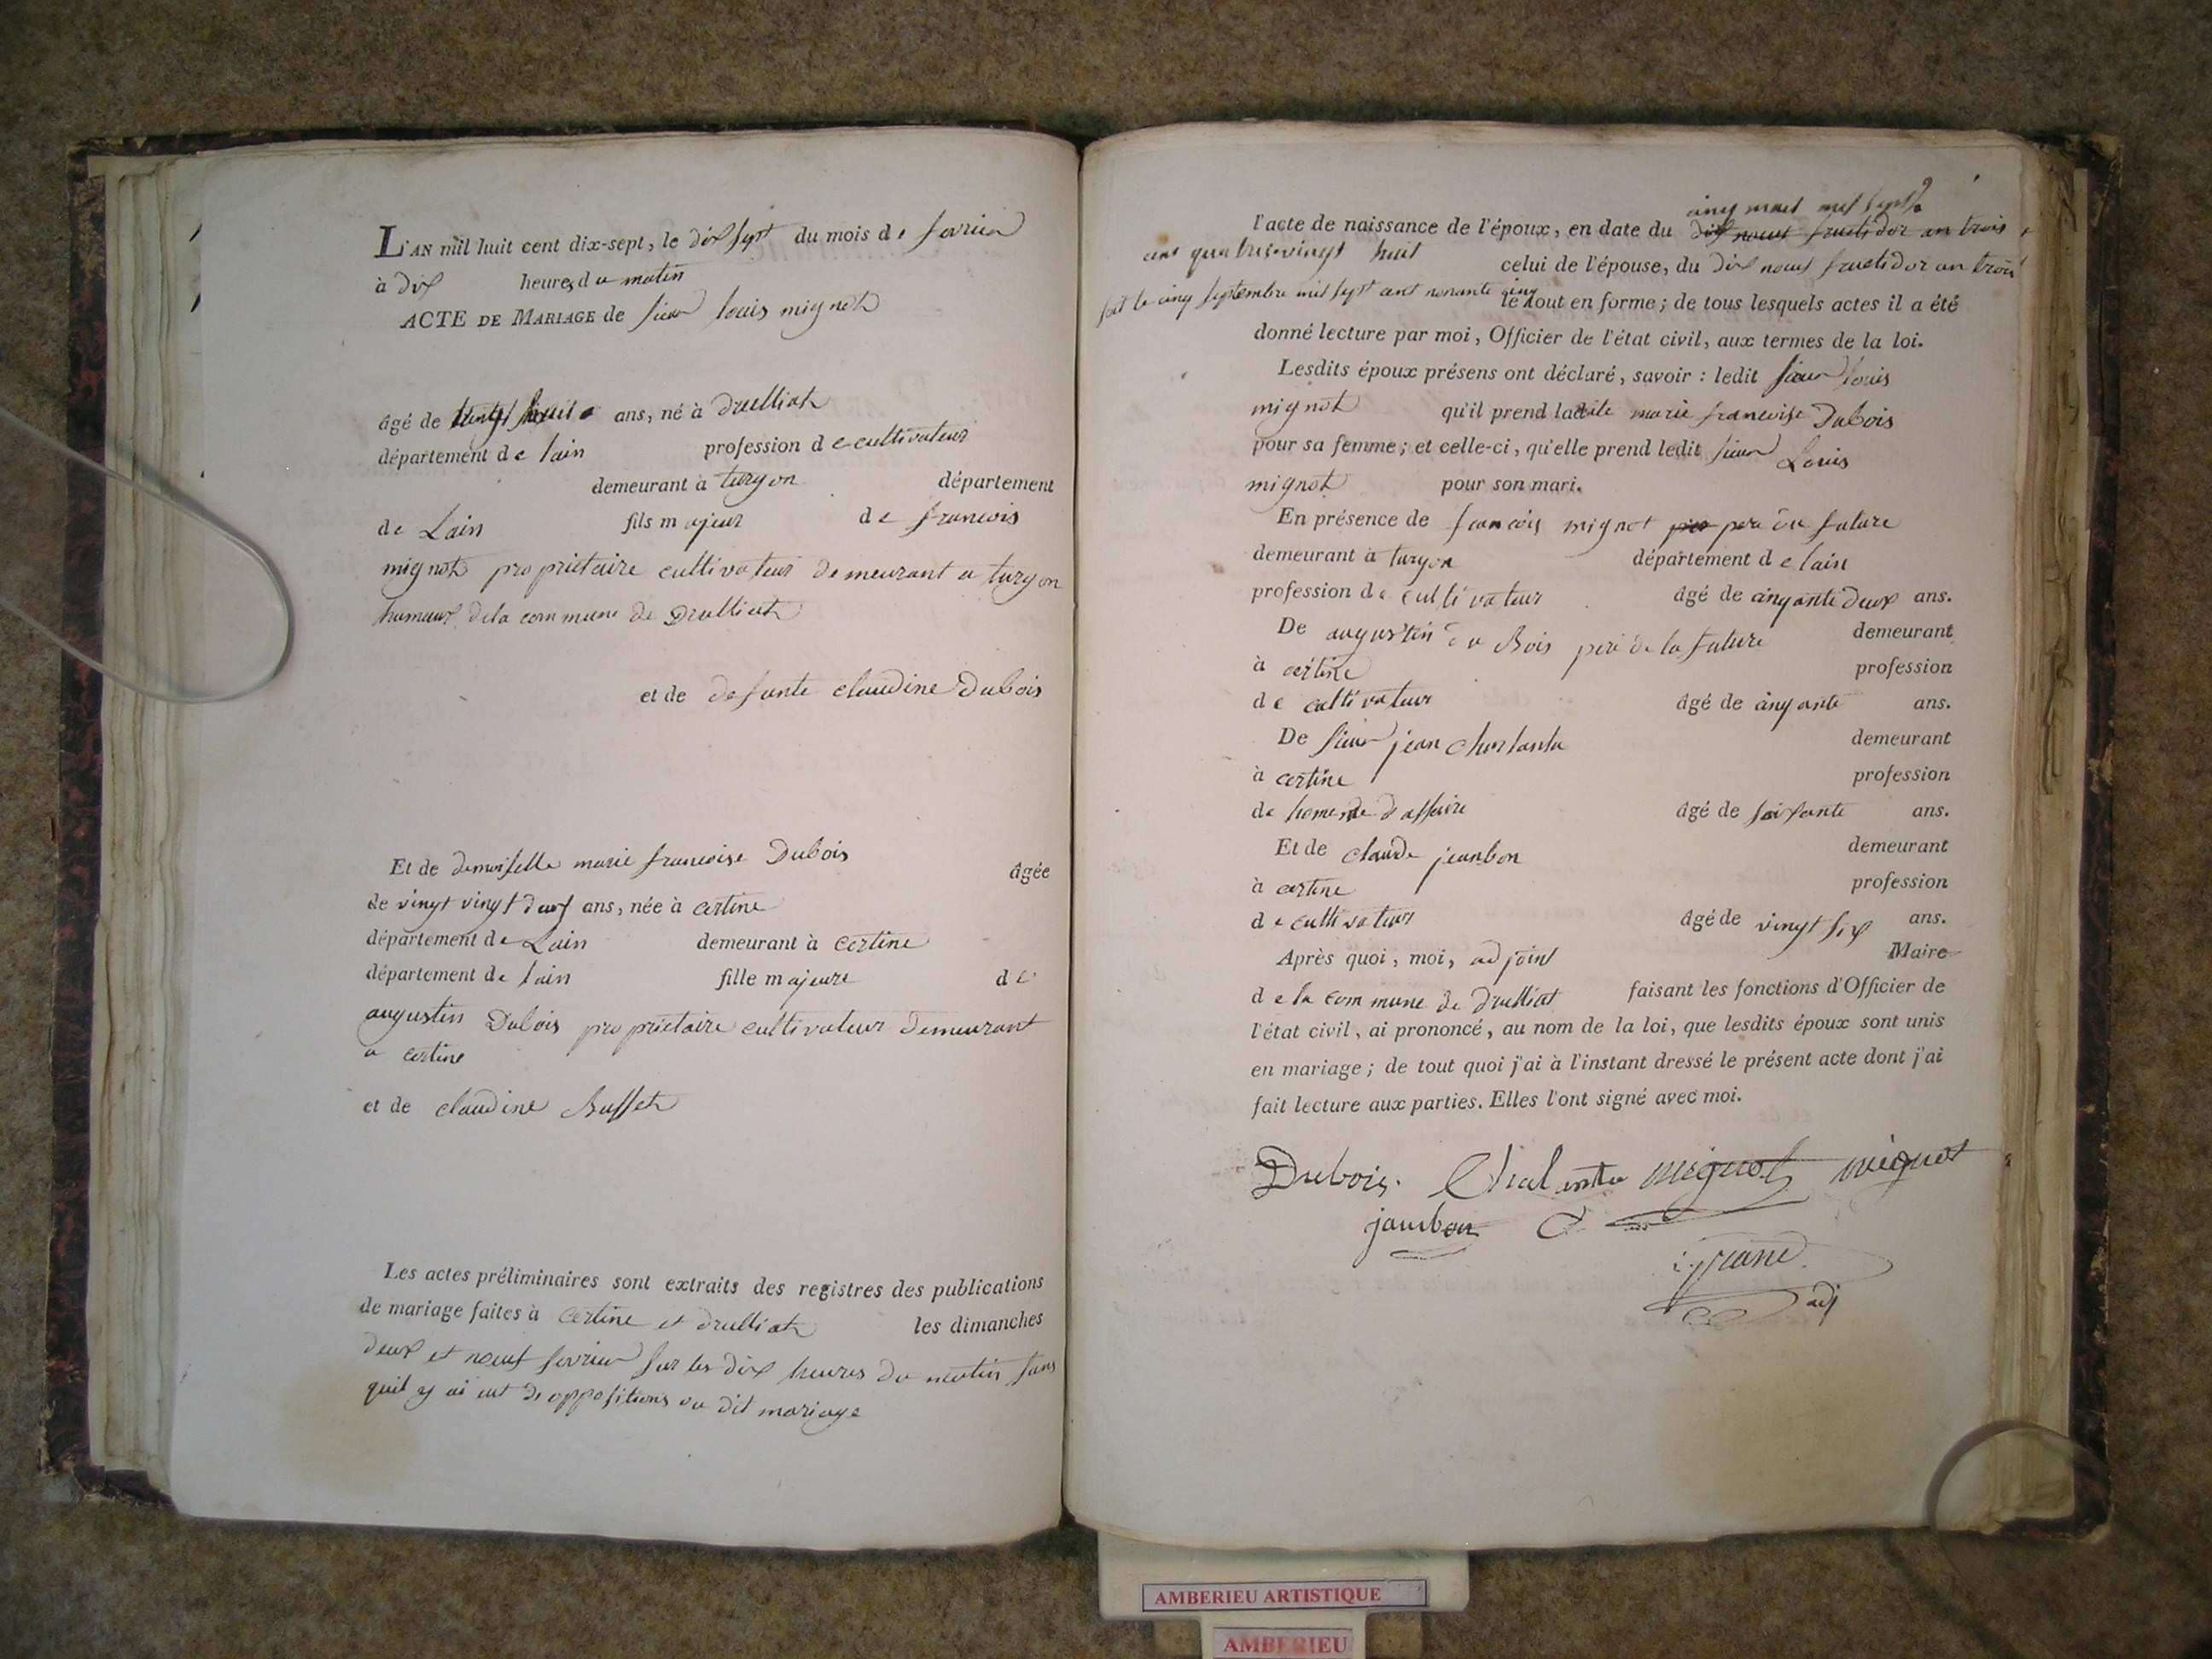 L'AN mil huit cent dix-sept, le dix sept du mois de fevrier
à dix heures du matin
ACTE DE MARIAGE de sieur louis mignot
âgé de vingt huit ans, né à druilliat
département de lain profession de cultivateur
demeurant à turgon département
de Lain fils majeur de francois
mignot proprietaire cultivateur demeurant a turgon
hameau dela commune de Druilliat
et de defunte claudine Dubois
Et de demoiselle marie francoise Dubois âgée
de vingt vingt deux ans, née à certine
département de Lain demeurant à certine
département de lain fille majeure de
augustin Dubois proprietaire cultivateur demeurant
a certine
et de claudine Buffet
Les actes préliminaires sont extraits des registres des publications
de mariage faites à certine et druilliat les dimanches
deux et neuf fevrier sur les dix heures du matin sans
quil y ai eut de oppositions au dit mariage
9
cinq mait mil sept
l'acte de naissance de l'époux, en date du dix neuf fructidor an trois
cent quatrevingt huit celui de l'épouse, du dix neuf fructidor an trois
soit le cinq septembre mil sept cent nonante cinq le tout en forme ; de tous lesquels actes il a été
donné lecture par moi, Officier de l'état civil, aux termes de la loi.
Lesdits époux présens ont déclaré, savoir : ledit sieur louis
mignot qu'il prend ladite marie francoise Dubois
pour sa femme ; et celle-ci, qu'elle prend ledit sieur Louis
mignot pour son mari.
En présence de francois mignot pere du future
demeurant à turgon département de lain
profession de cultivateur âgé de cinqante deux ans.
De augustin du Bois pere de la future demeurant
à certine profession
de cultivateur âgé de cinqante ans.
De sieur jean demeurant
à certine profession
de home de daffaire âgé de soixante ans.
Et de claude jeanbon demeurant
à certine profession
de cultivateur âgé de vingt six ans.
Après quoi, moi, adjoint Maire
de la commune de druilliat faisant les fonctions d'Officier de
l'état civil, ai prononcé, au nom de la loi, que lesdits époux sont unis
en mariage ; de tout quoi j'ai à l'instant dressé le présent acte dont j'ai
fait lecture aux parties. Elles l'ont signé avec moi.
Dubois. mignot mignot
jambon
adj
AMBERIEU ARTISTIQUE
AMBERIEU